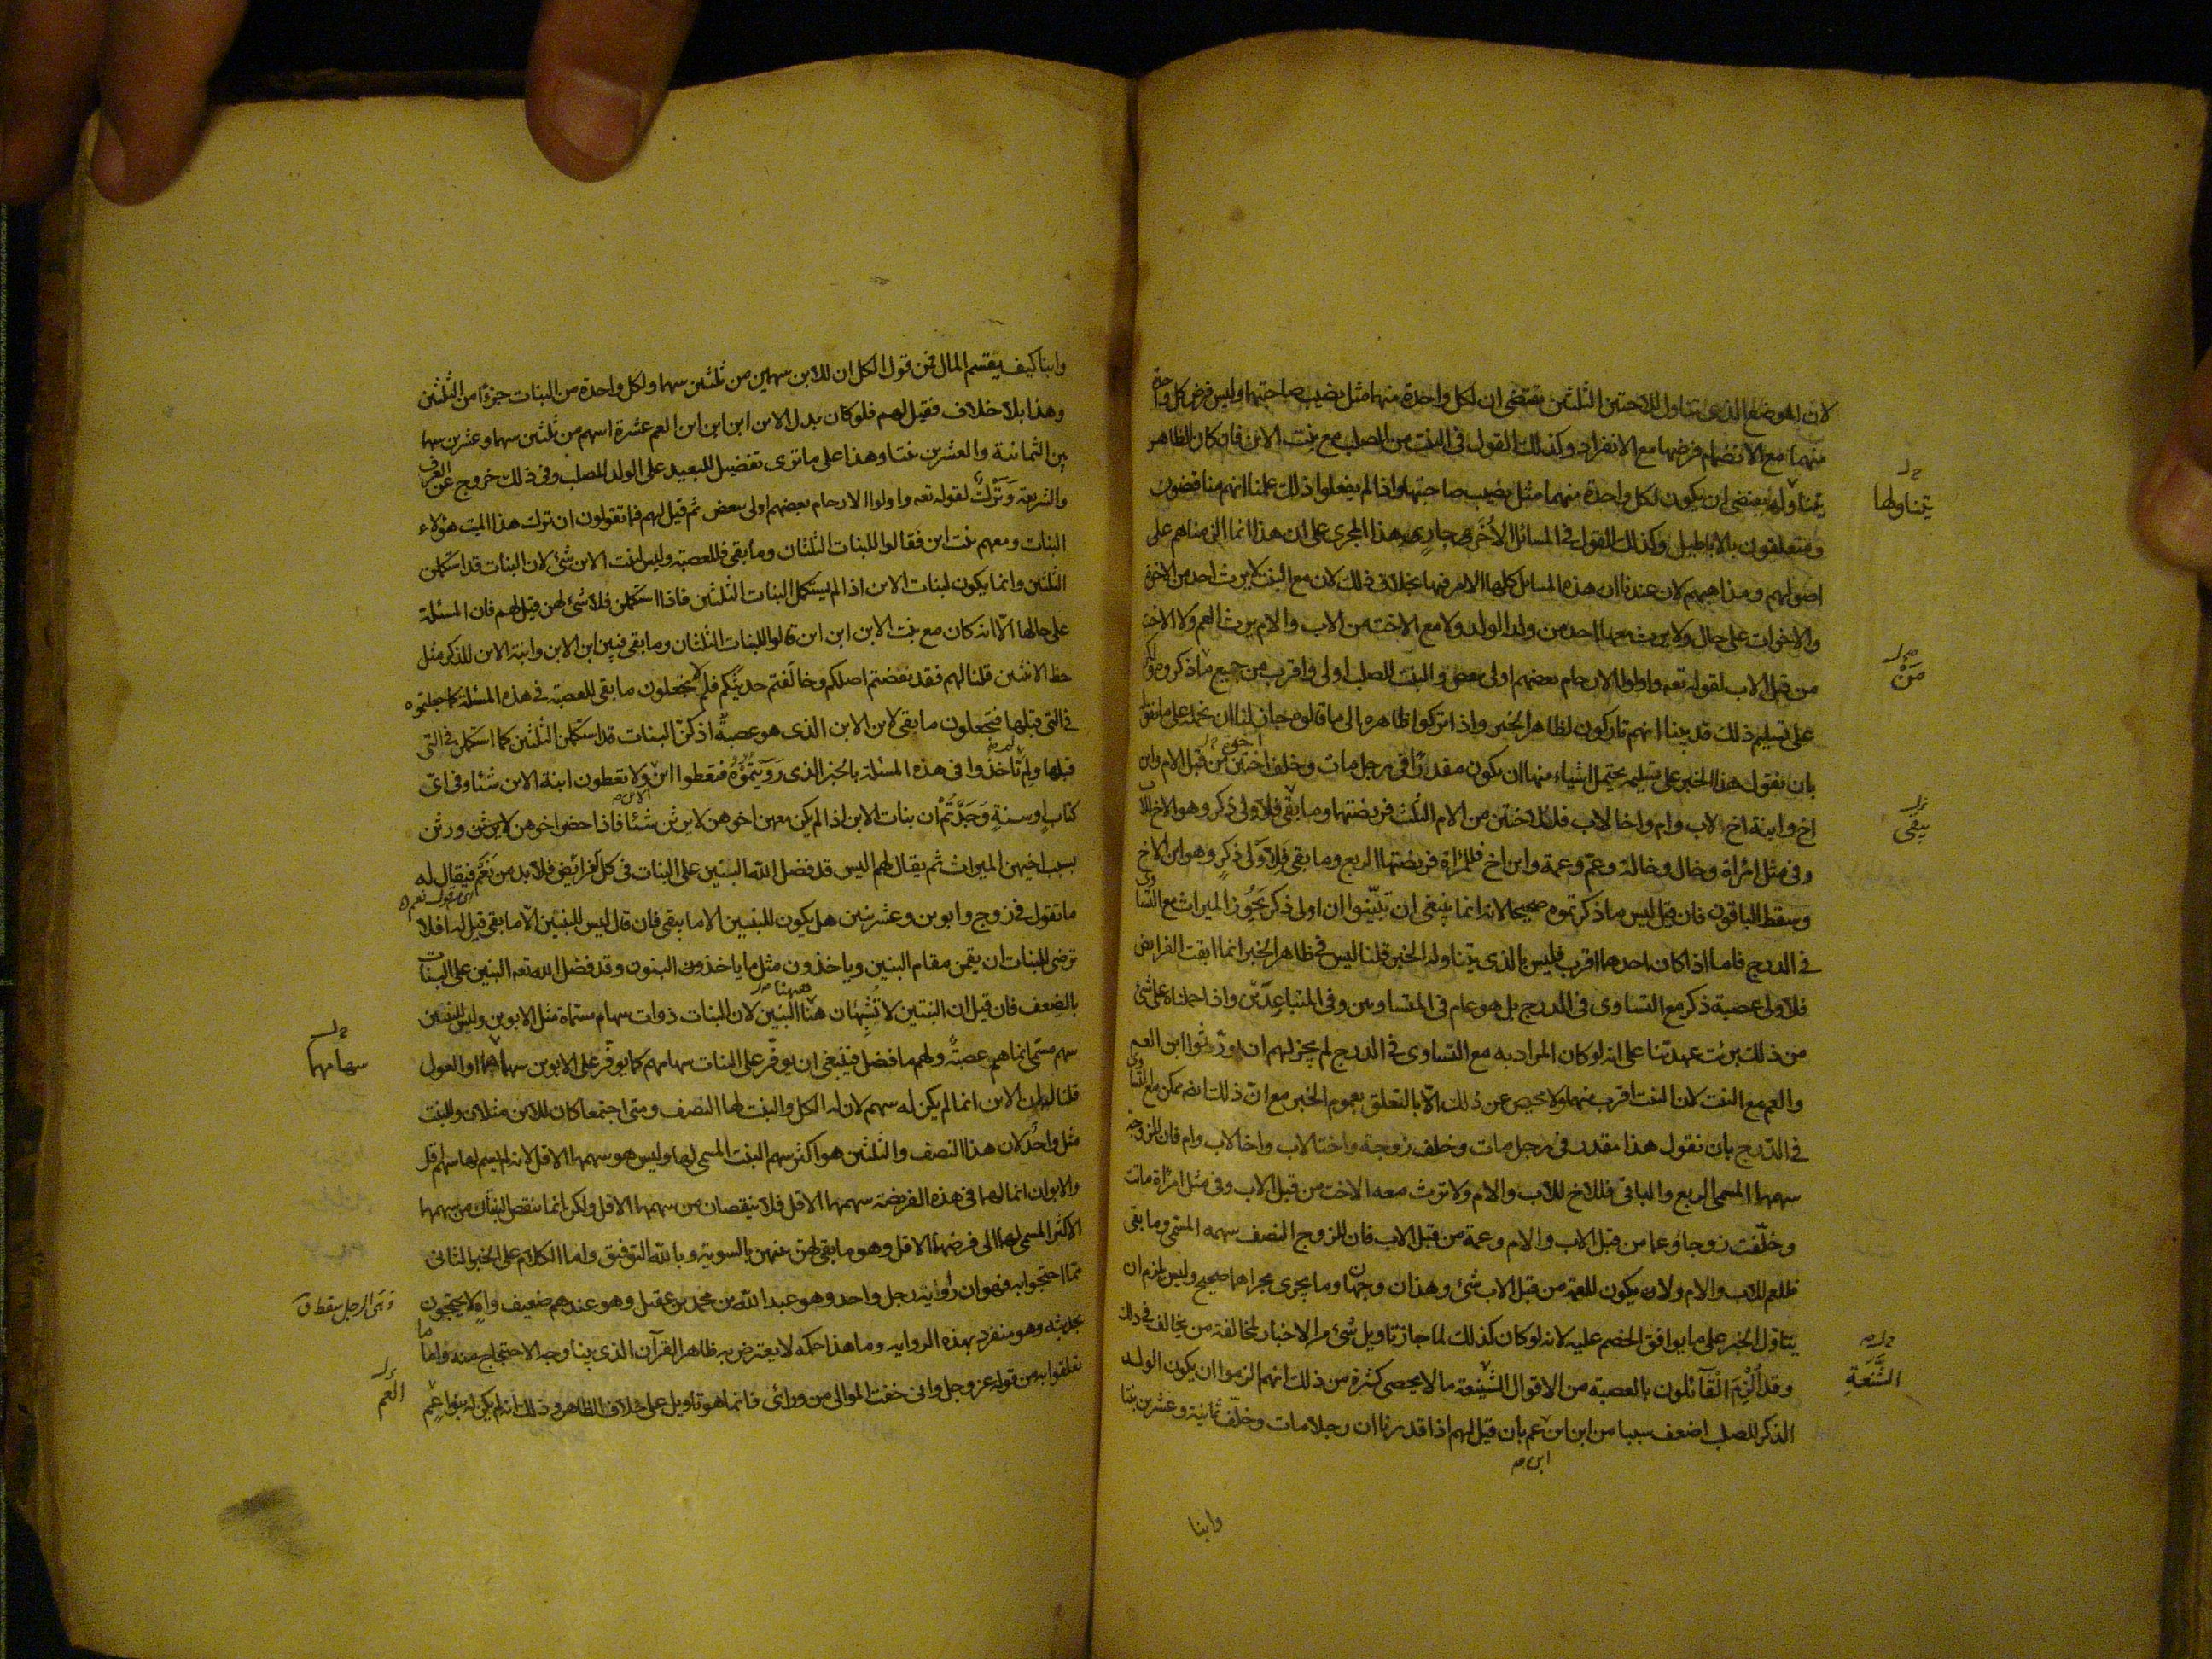 لان الموضع الذى تناول للاختين الثلثين يقتضى ان لكل واحدة منهما مثل نصيب صاحبتها وليس فرض كل واحدة
منهما مع الانضمام فرضها مع الانفراد وكذلك القول فى البنت من الصلب مع بنت الابن فان كان الظاهر
يتناوله يقتضى ان يكون لكل واحدة منهما مثل نصيب صاحبتها واذا لم يفعلوا ذلك علمنا انهم مناقضون
ومتعلقون بالاباطيل وكذلك القول فى المسائل الأخرى جارٍ هذا المجرى على ان هذا انما الزمناهم على
اصولهم ومذاهبهم لان عندنا ان هذه المسائل كلها الامر فيها بخلاف ذلك لان مع البنت لا يرث احد من الاخوة
والاخوات على حال ولا يرث معها احد من ولد الولد ولا مع الاخت من الاب والام يرث العم ولا الاخت
من قبل الاب لقوله تعه واولوا الارحام بعضهم اولى ببعض والبنت للصلب اولى واقرب من جميع ما ذكروه
على تسليم ذلك قد بينا انهم تاركون لظاهر الخبر واذا تركوا ظاهره الى ما قالوه جاز لنا ان نحمله على ما نقول
بان نقول هذا الخبر على تسليمه يحتمل اشياء منها ان يكون مقدرًا فى رجل مات وخلف اختين من قبل الام وابن
اخ وابنة اخ لاب وام واخا لاب فللاختين من الام الثلث فريضتهما وما بقى فلاولى ذكر وهو الاخ للاب
وفى مثل امرأة وخال وخالة وعم وعمة وابن اخ فللمرأة فريضتها الربع وما بقى فلاولى ذكر وهو ابن الاخ
وسقط الباقون فان قيل ليس ما ذكرتموه صحيحا لانه انما ينبغى ان تبيّنوا ان اولى ذكر يحوز الميراث مع التساوى
فى الدرج فاما اذا كان احدهما اقرب فليس بالذى يتناوله الخبر قلنا ليس فى ظاهر الخبر انما ابقت الفرايض
فلاولى عصبة ذكر مع التساوى فى الدرج بل هو عام فى المتساويين وفى المتباعدين واذا حملناه على شئ
من ذلك برئت عهدتنا على انه لو كان المراد به مع التساوى فى الدرج لم يجز لهم ان يورّثوا ابن العم
والعم مع البنت لان البنت اقرب منهما ولا محيص عن ذلك الّا بالتعلق بعموم الخبر مع انّ ذلك انه ممكن مع التساوى
فى الدّرج بان نقول هذا مقدر فى رجل مات وخلف زوجة واختا لاب واخا لاب وام فان للزوجة
سهمها المسمى الربع والباقى فللاخ للاب والام ولا ترث معه الاخت من قبل الاب وفى مثل امرأة ماتت
وخلّفت زوجا وعما من قبل الاب والام وعمة من قبل الاب فان للزوج النصف سهمه المسمّى وما بقى
فللعم للاب والام ولا يكون للعمة من قبل الاب شئ وهذان وجهان وما يجرى مجراهما صحيح وليس يلزم ان
يتاوّل الخبر على ما يوافق الخصم عليه لانه لو كان كذلك لما جاز تاويل شئ من الاخبار لمخالفة من يخالف فى ذلك
وقد أُلزِمَ القائلون بالعصبة من الاقوال الشنيعة ما لا يحصى كثرة من ذلك انهم الزموا ان يكون الولد
الذكر للصلب اضعف سببا من ابن ابن عم بان قيل لهم اذا قدرنا ان رجلا مات وخلّف ثمانية وعشرين بنتا
ابن
وابنا
يتناولها
من
يبقى
الشنعة
وابنا كيف يقسم المال فمن قول الكل ان للابن سهمين من ثلثين سهما ولكل واحدة من البنات جزءًا من الثلثين
وهذا بلا خلاف فقيل لهم فلو كان بدل الابن ابن ابن ابن العم عشرة اسهم من ثلثين سهما وعشرين سهما
بين الثمانية والعشرين بنتا وهذا على ما ترى تفضيل للبعيد على الولد للصلب وفى ذلك خروج عن العرف
والشريعة وترك لقوله تعه واولوا الارحام بعضهم اولى ببعض ثم قيل لهم فما تقولون ان ترك هذا الميت هؤلاء
البنات ومعهم بنت ابن فقالوا للبنات الثلثان وما بقى فللعصبة وليس لبنت الابن شئ لان البنات قد استكملن
الثلثين وانما يكون لبنات الابن اذا لم يستكمل البنات الثلثين فاذا استكملن فلا شئ لهن قيل لهم فان المسئلة
على حالها الّا انه كان مع بنت الابن ابن ابن قالوا للبنات الثلثان وما بقى فبين ابن الابن وابنة الابن للذكر مثل
حظ الانثيين قلنا لهم فقد نقضتم اصلكم وخالفتم حديثكم فلم لا تجعلون ما بقى للعصبة فى هذه المسئلة كما جعلتموه
فى التى قبلها فتجعلون ما بقى لابن الابن الذى هو عصبة اذ كنّ البنات قد استكملن الثلثين كما استكملن فى التى
قبلها ولم تاخذوا فى هذه المسئلة بالخبر الذى رويتموه فتعطوا ابن ولا تعطون ابنة الابن شئا وفى اىّ
كتاب او سنة وجدتم ان بنات الابن اذا لم يكن معهن اخوهن لا يرثن شئا فاذا حضر اخوهن ورثن
بسبب اخيهن الميراث ثم يقال لهم اليس قد فضل الله البنين على البنات فى كل الفرائض فلا بد من نعم فيقال له
ما تقول فى زوج وابوين وعشر بنين هل يكون للبنين الا ما بقى فان قال ليس للبنين الّا ما بقى قيل له افلا
ترضى للبنات ان يقمن مقام البنين وياخذون مثل ما ياخذون البنون وقد فضل الله تعه البنين على البنات
بالضعف فان قيل ان البنتين لا تشبهان هنا البنين لان البنات ذوات سهام مسماة مثل الابوين وليس للبنين
سهم مسمى انما هم عصبة ولهم ما فضل فينبغى ان يوفّر على البنات سهامهم كما يوفّر على الابوين سهماهما او العول
قلنا لهم ان الابن انما لم يكن له سهم لان له الكل والبنت لها النصف ومتى اجتمعا كان للابن مثلان وللبنت
مثل واحد لان هذا النصف والثلثين هو اكثر سهم البنت المسمى لها وليس هو سهمها الاقل لانه لم يسم لها سهم اقل
والابوان انما لهما فى هذه الفريضة سهمهما الاقل فلا ينقصان من سهمهما الاقل ولكن انما ننقص البنات من سهمها
الاكثر المسمى لهما الى فرضهما الاقل وهو ما بقى لهن بينهن بالسوية وبالله التوفيق واما الكلام على الخبر الثانى
مما احتجوا به فهو ان راويه رجل واحد وهو عبد الله بن محمد بن عقيل وهو عندهم ضعيف واهٍ لا يحتجون
بحديثه وهو منفرد بهذه الرواية وما هذا حكمه لا يعترض به ظاهر القرآن الذى بينا وجه الاحتجاج منه واما ما
تعلقوا به من قوله عز وجل وانى خفت الموالى من ورائى فانما هو تاويل على خلاف الظاهر وذلك انه لم يكن له بنو عم
سهامهما
العم